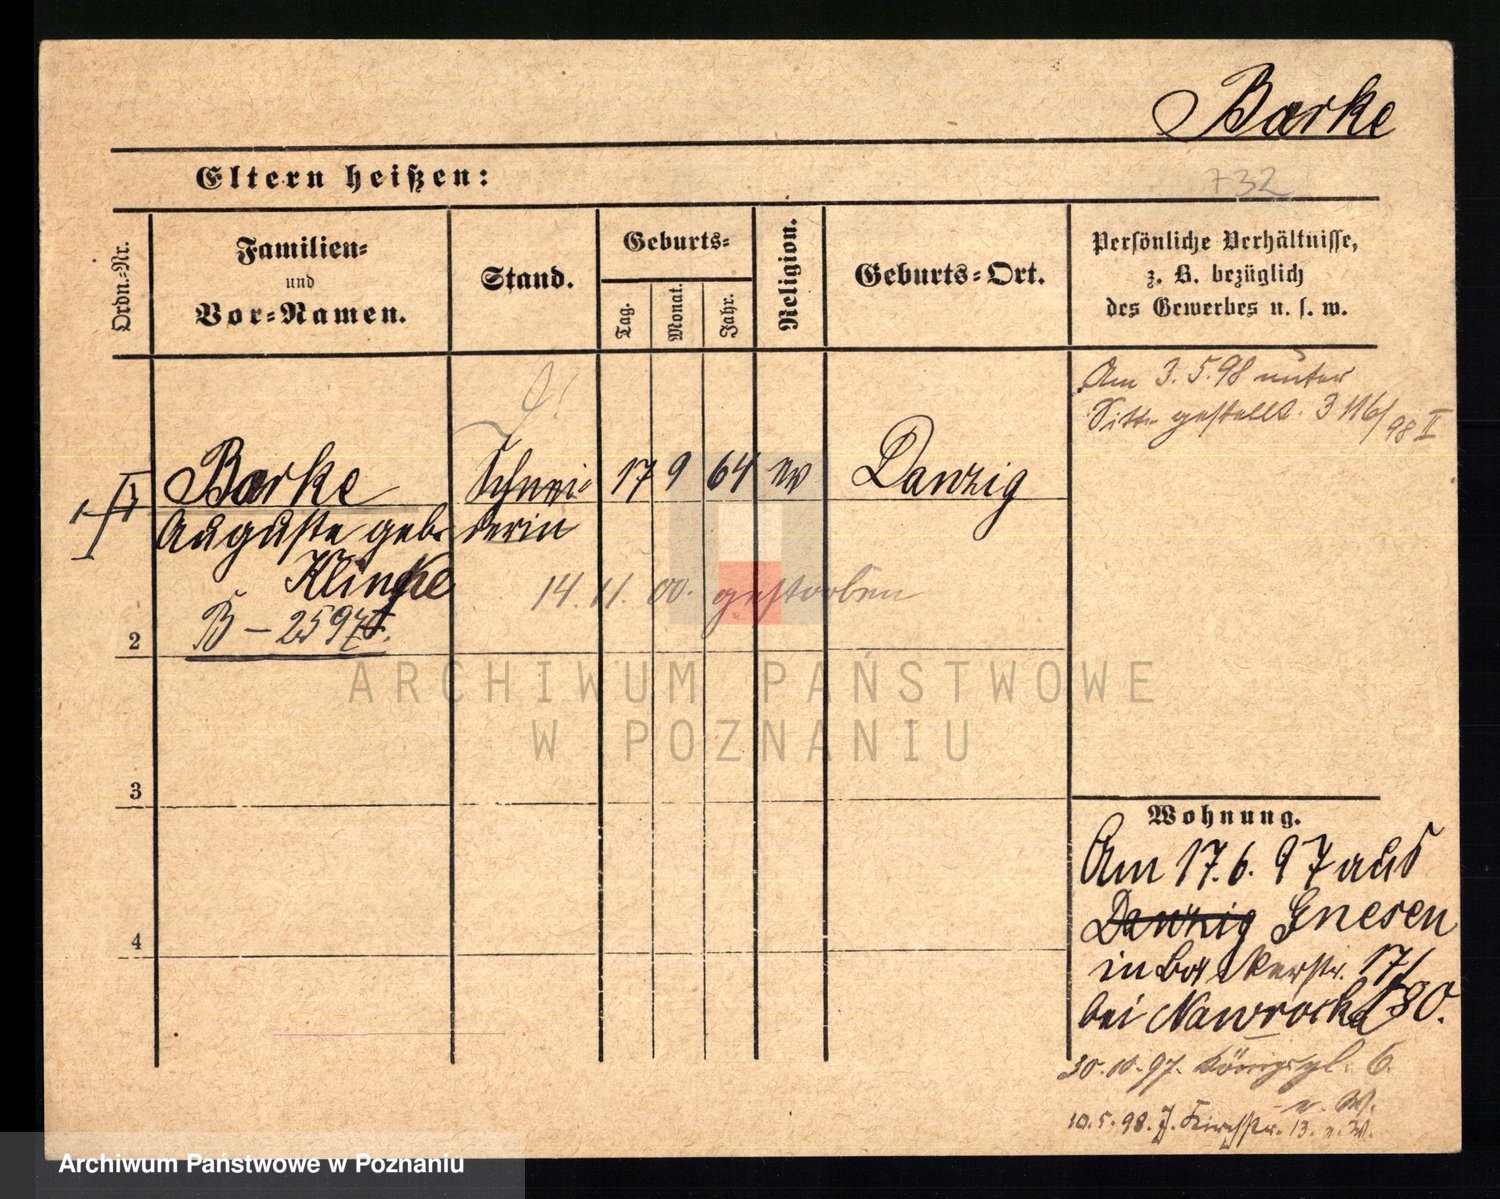 Barke
Eltern heißen:
732
Ordn.=Nr.
Familien=
und
Vor=Namen.
Stand.
Geburts=
Tag.
Monat.
Jahr.
Religion.
Geburts=Ort.
Persönliche Verhältnisse,
z. B. bezüglich
des Gewerbes u. s. w.
Am 3.5.98 unter
Sitte gestellt. 3 116/98 II
Barke Schnei- 17 9 64 ev Danzig
Auguste geb. derin
Klinke
14. 11. 00. gestorben
B – 259
2
3
4
ARCHIWUM PAŃSTWOWE
W POZNANIU
Wohnung.
Am 17.6.97 aus
Danzig Gnesen
in Bäckerstr. 17/
bei Nawrocka 80.
30.10.97. Königspl. 6.
v. W.
10.5.98. J. Kirchstr. 13. v. W.
Archiwum Państwowe w Poznaniu